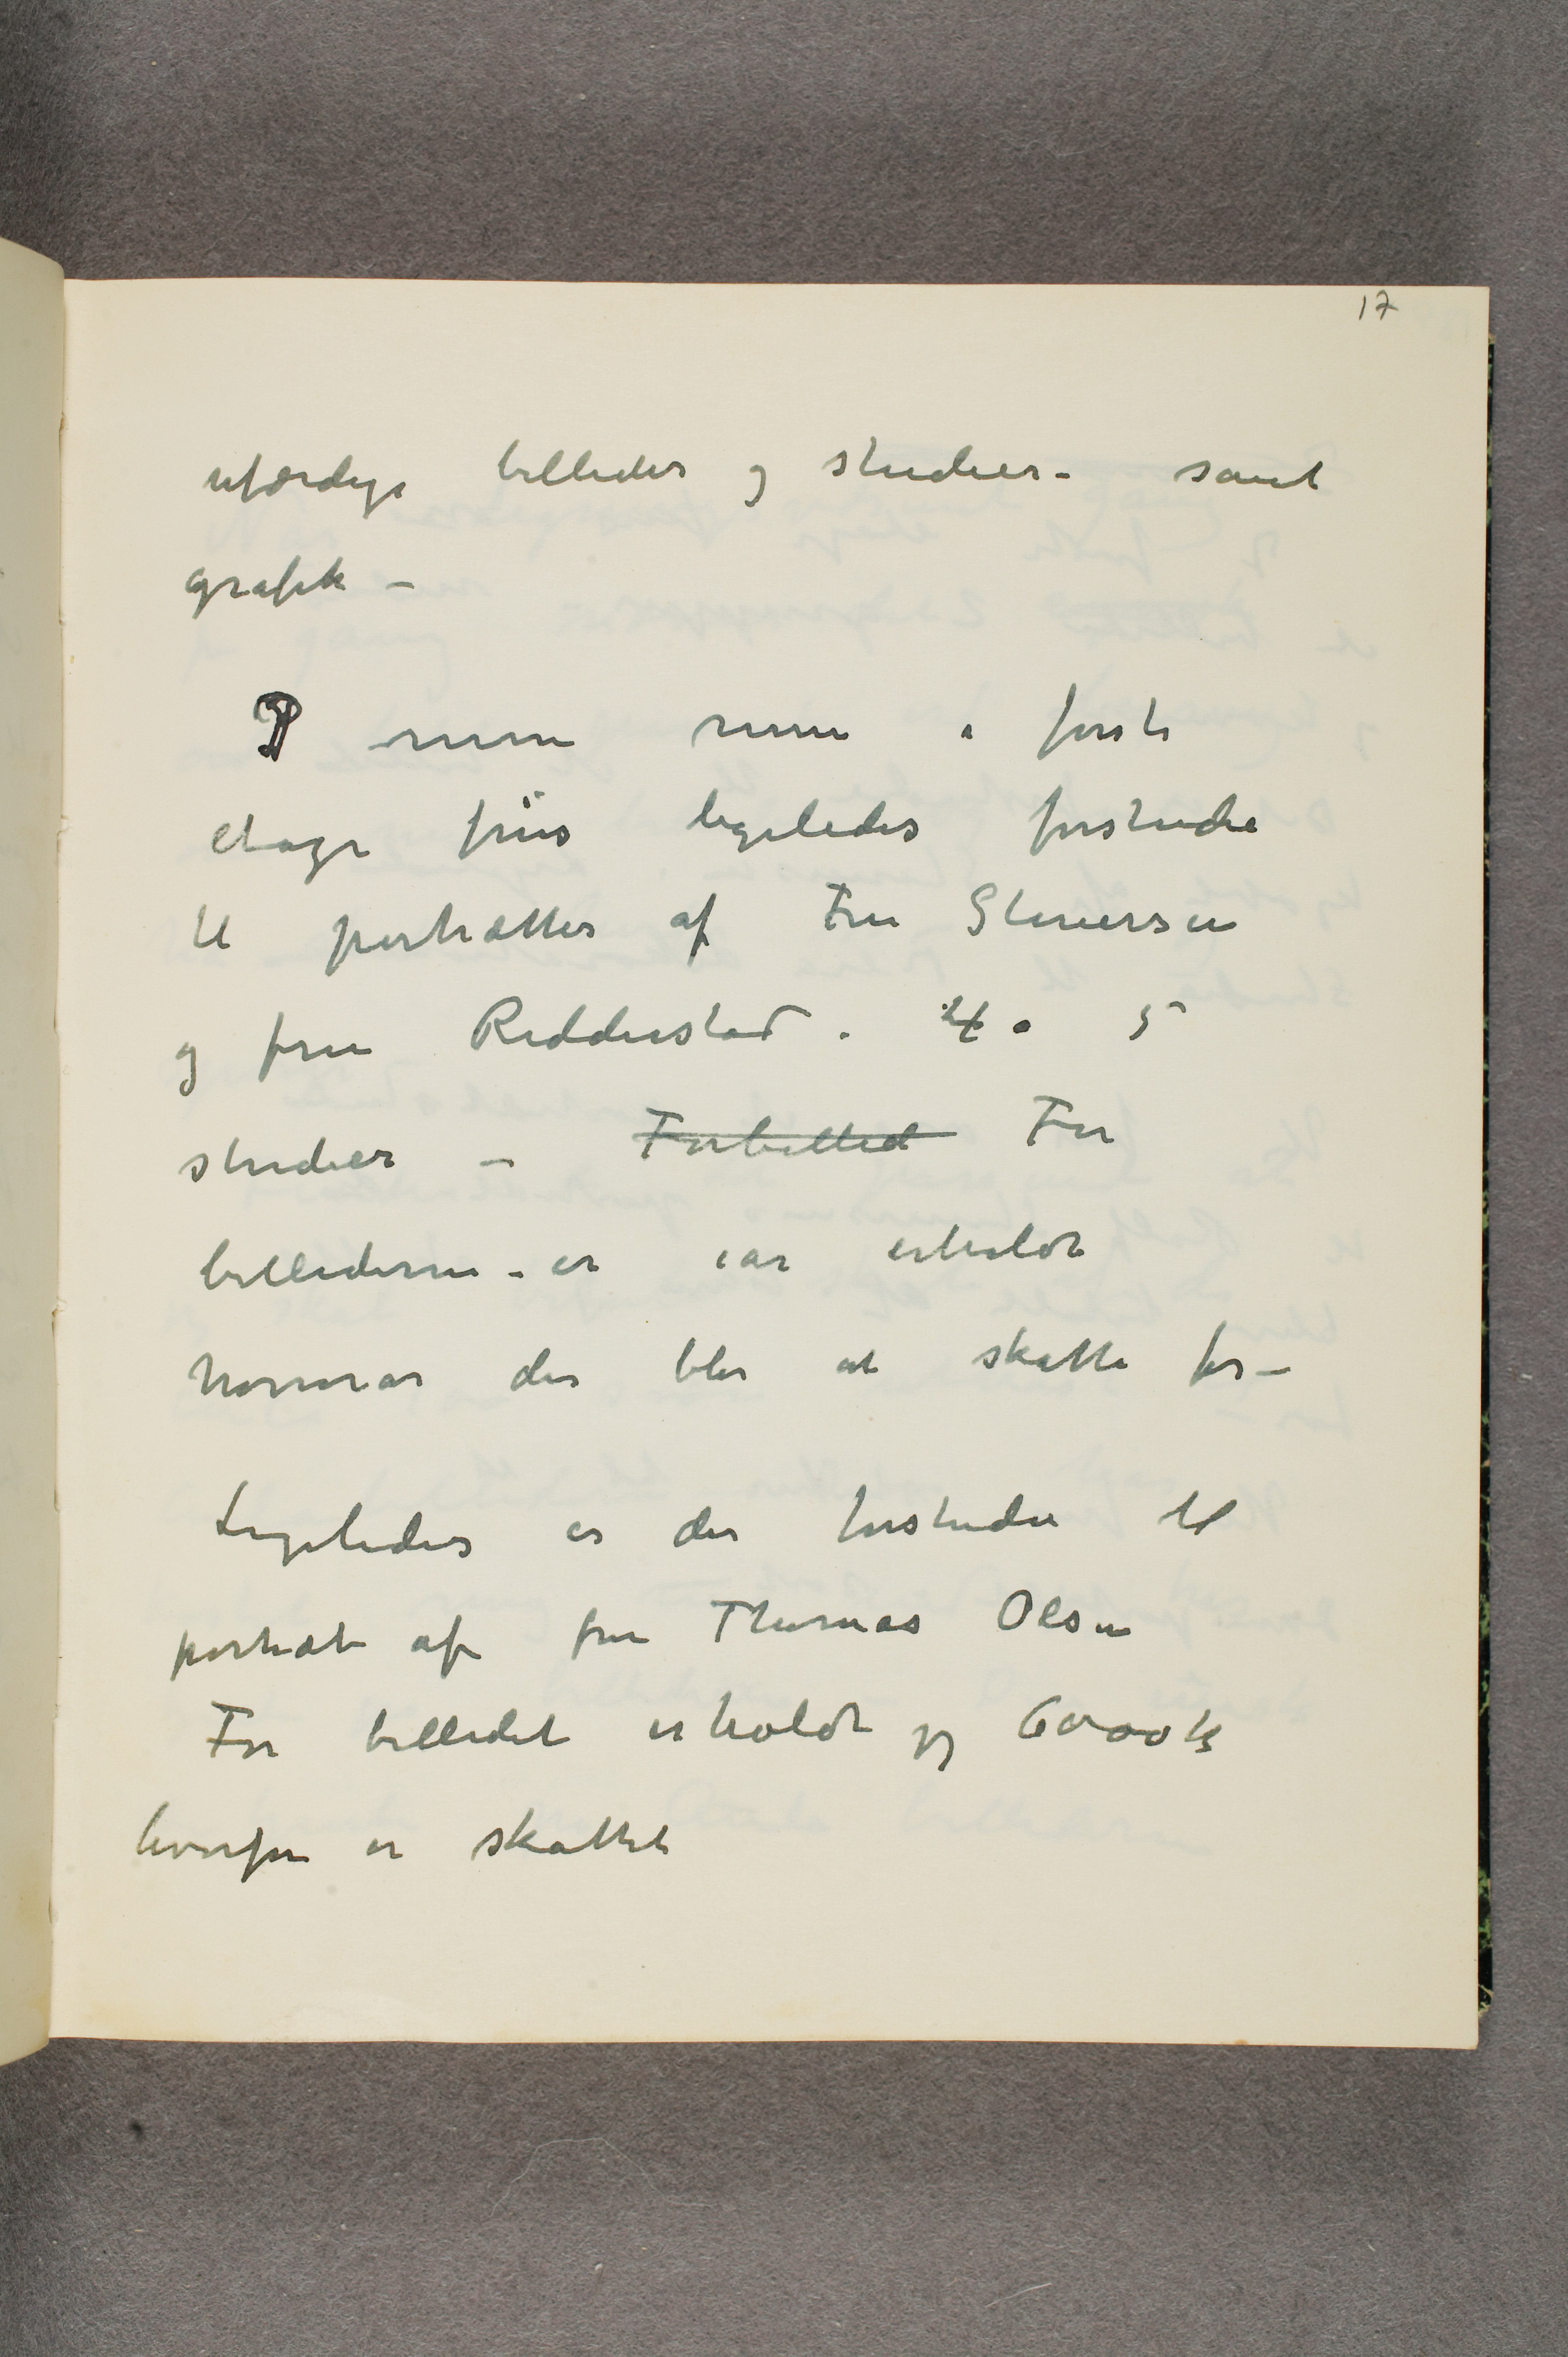 17
ufærdige billeder og studier – samt
grafik –
I mine rum i første
etage fins ligeledes forstudie
til portrætter af Fru Stenersen
og fru Ridderstad. 4 a 5
studier – Forbilled For
billederne – er iår erholdt
honorar der blir at skatte for –
Ligeledes er der forstudie til
portræt af fru Thomas Olsen
For billedet erholdt jeg 6000 kr
hvorfor er skattet